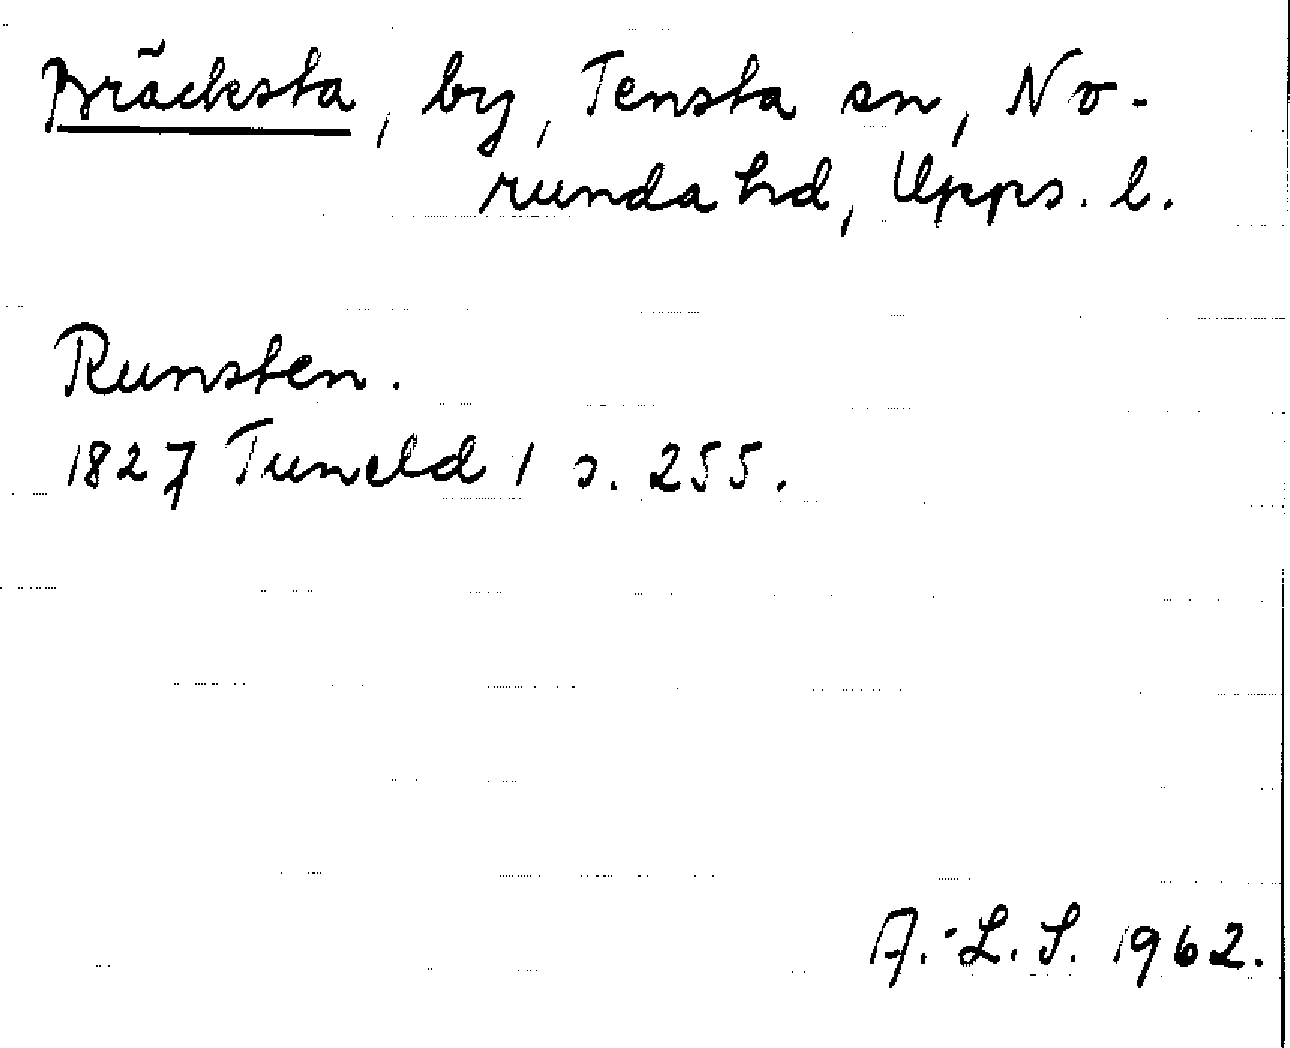 Bräcksta, by, Tensta sn, No-
runda hd, Upps. l.
Runsten.
1827 Tuneld 1 s. 255.
A.-L. S. 1962.